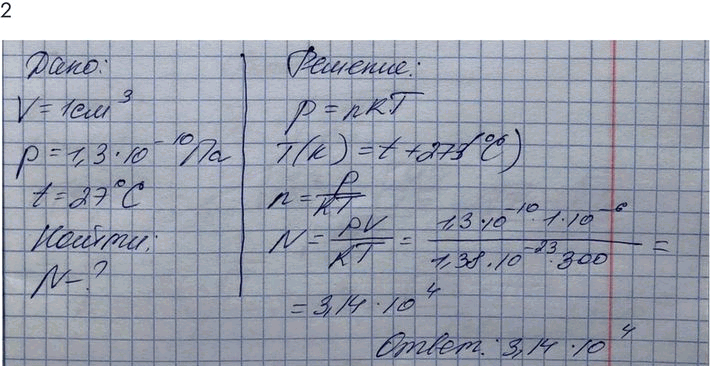 2
Дано:
V = 1см³
p = 1,3 · 10⁻¹⁰ Па
t = 27°C
Найти:
N - ?
Решение:
p = nkT
T(К) = t + 273(°C)
n = p/kT
N = pV/kT = 1,3·10⁻¹⁰·1·10⁻⁶/1,38·10⁻²³·300 =
= 3,14 · 10⁴
Ответ: 3,14 · 10⁴